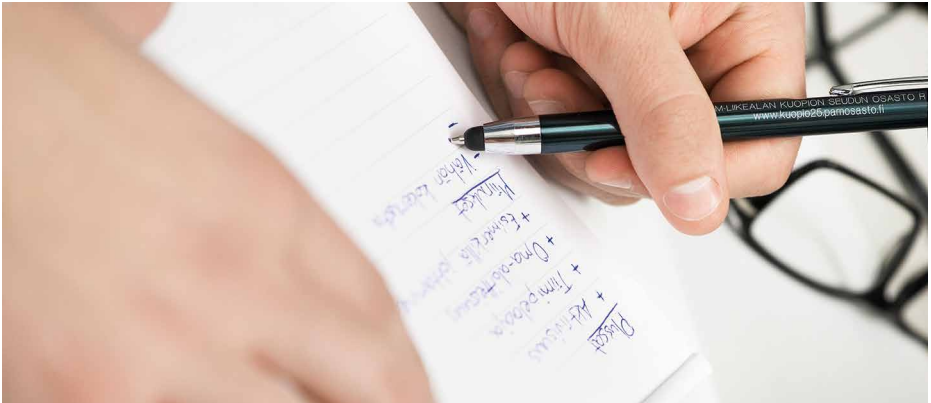 M-LIIKEALAN KUOPION SEUDUN OSASTO R
www.kuopio25.pamosasto.fi
Plussat
+ Aktiivisuus
+ Tiimipelaaja
+ Oma-aloitteisuus
+ Esimerkillä
Miinukset
- Vähän kokemusta
-